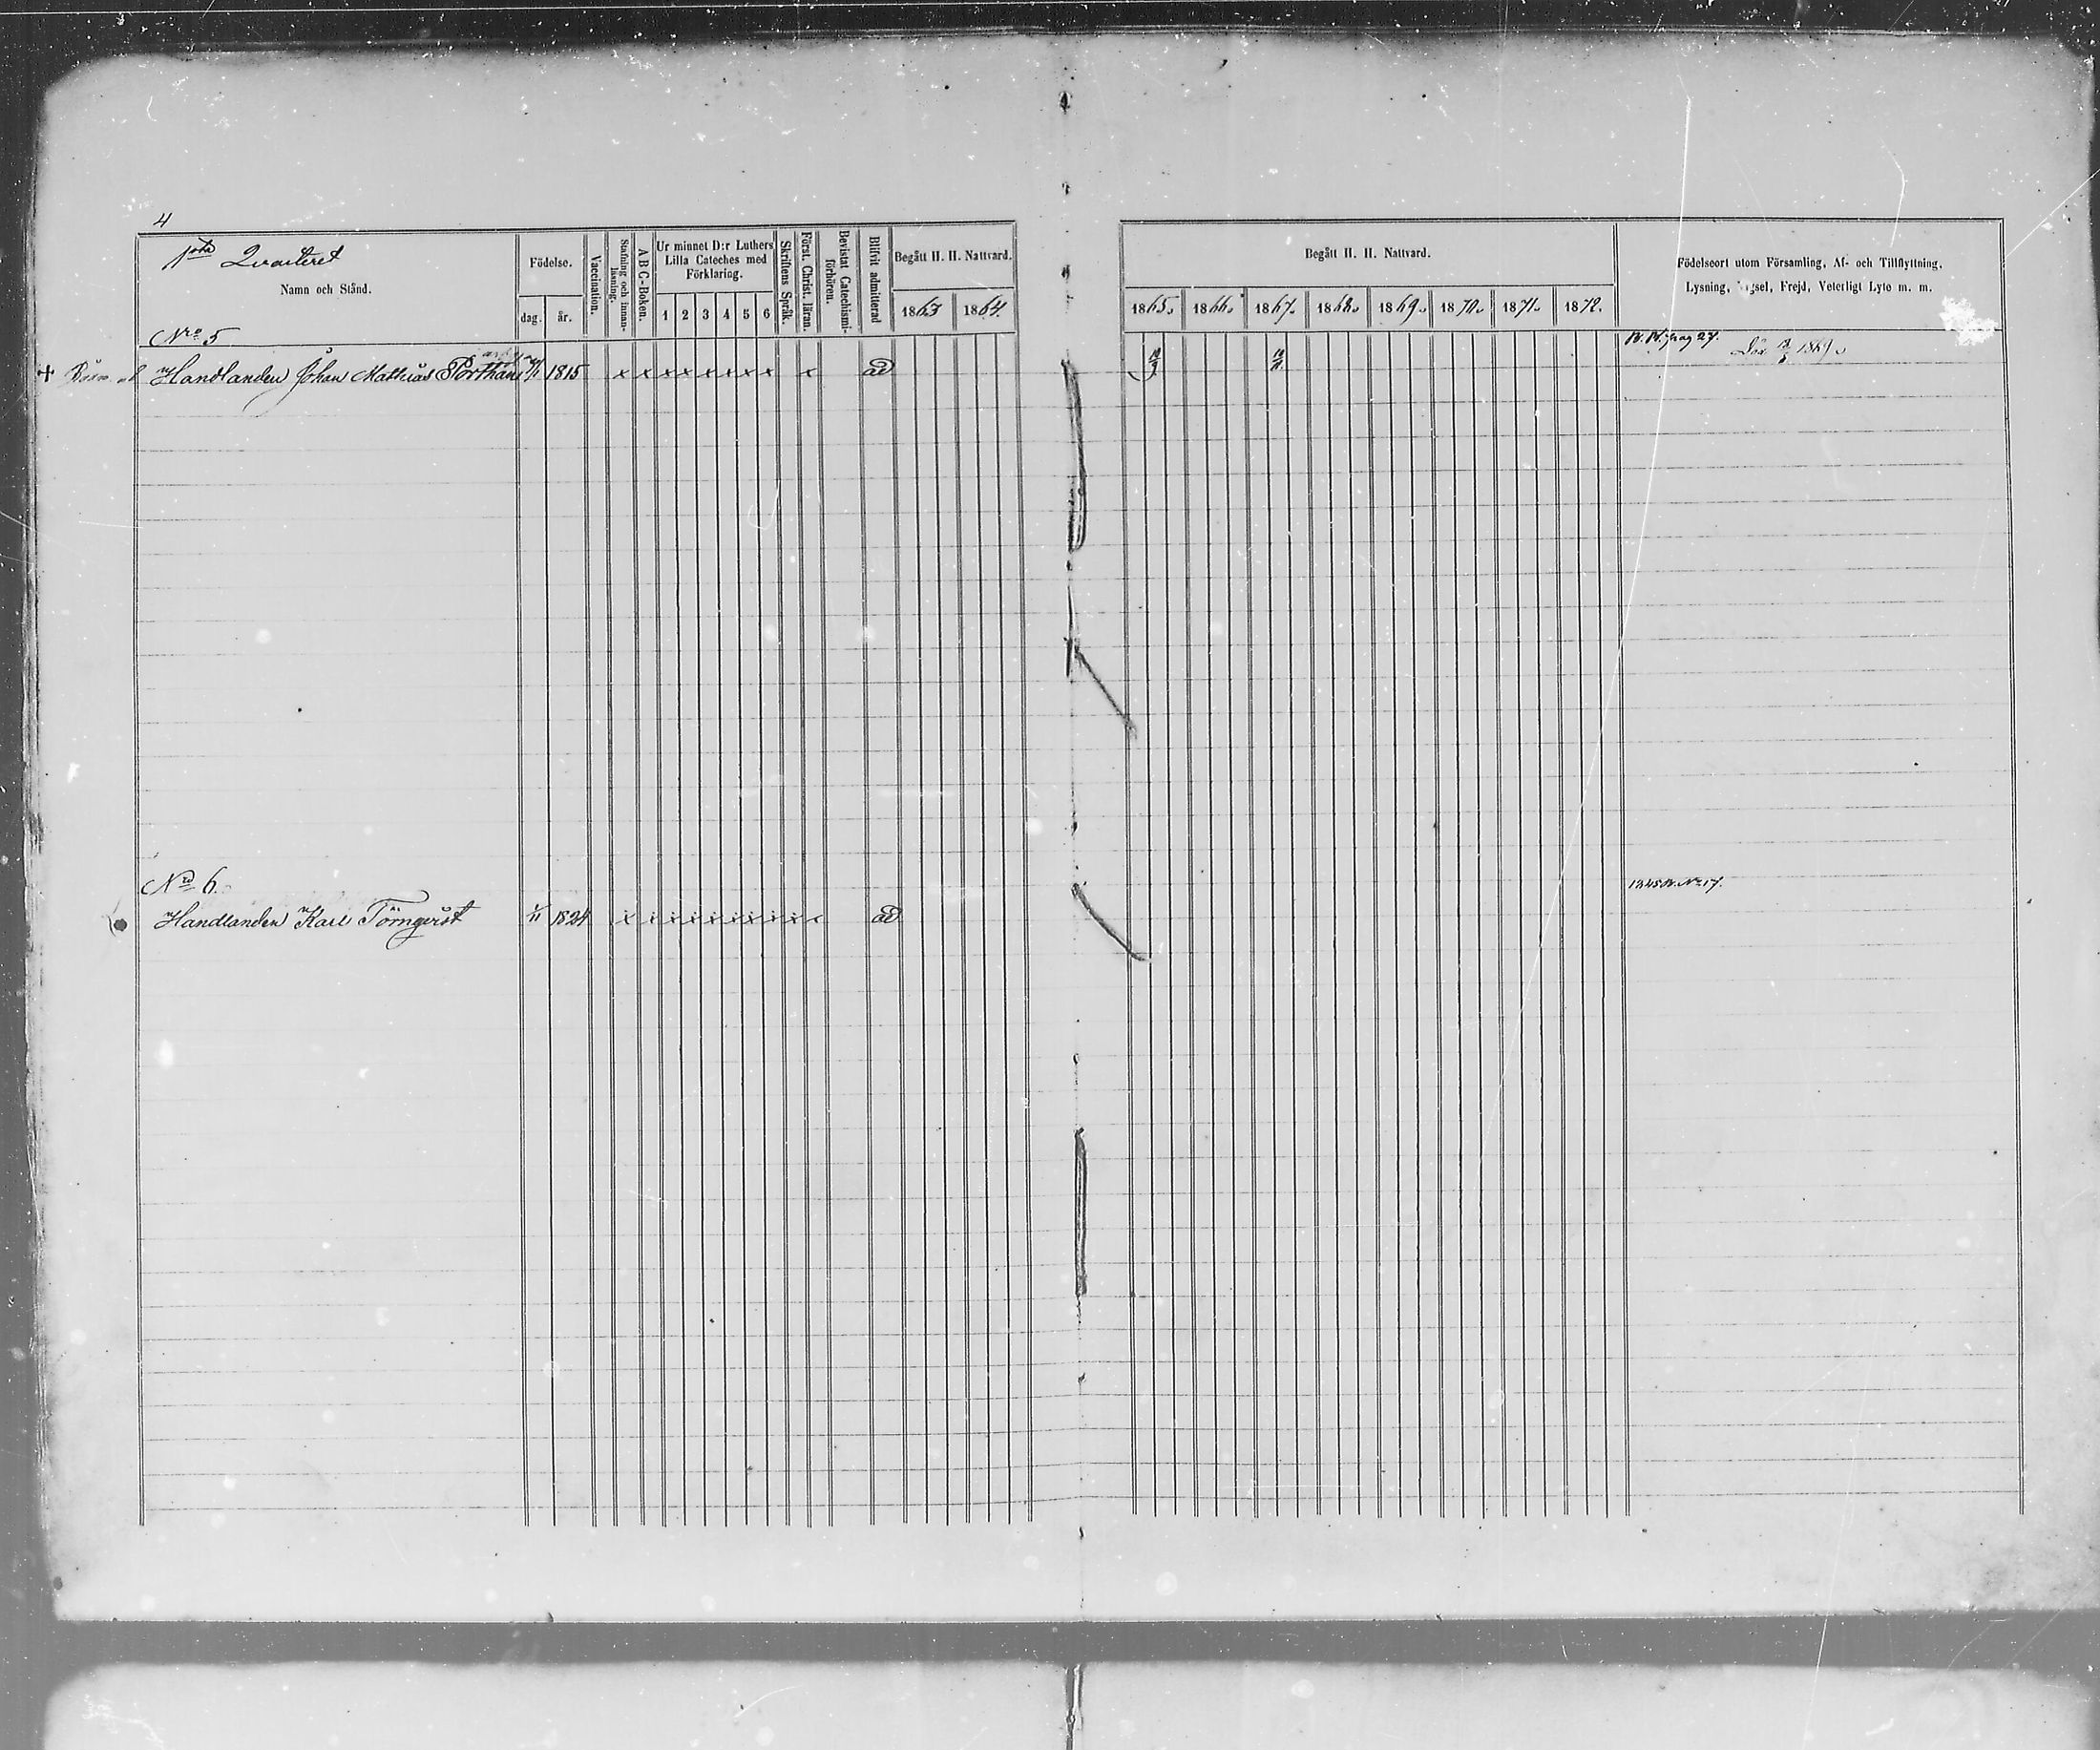 4
1sta Qvarteret
Namn och Stånd.
Födelse.
dag. år.
Vaccination.
Stafning och innanläsning.
A B C-Boken.
Ur minnet D:r Luthers
Lilla Cateches med
Förklaring.
1 2 3 4 5 6
Skriftens Språk.
Först. Christ. läran.
Bevistat Catechismi-förhören.
Blifvit admitterad
Begått H. H. Nattvard.
1863 1864.
Begått H. H. Nattvard.
1865. 1866. 1867. 1868. 1869. 1870. 1871. 1872.
Födelseort utom Församling, Af- och Tillflyttning,
Lysning, Frejd, Veterligt Lyte m. m.
Nro 5
pag 27.
Handlanden Johan Mathias Porthan 1815 x x x x x x x x x ad Död 1869.
No 6.
1845 No 17.
Handlanden Karl Törnqvist 1/11 1824 x x x x x x x x x x ad